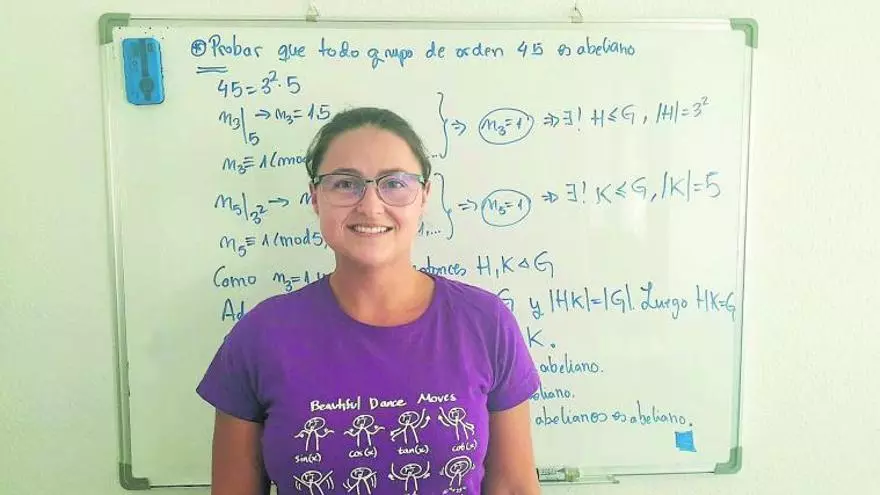 ⊛ Probar que todo grupo de orden 45 es abeliano
45=3²·5
n₃|5 → n₃=1,5
n₃≡1(mod
⇒ n₃=1 ⇒ ∃! H≤G, |H|=3²
n₅|3² →
n₅≡1(mod5, 1,...
⇒ n₅=1 ⇒ ∃! K≤G, |K|=5
Como n₃=1 entonces H,K◁G
Ad G y |HK|=|G|. Luego HK=G
K.
abeliano.
abelianos es abeliano.
Beautiful Dance Moves
sin(x) cos(x) tan(x) cot(x)